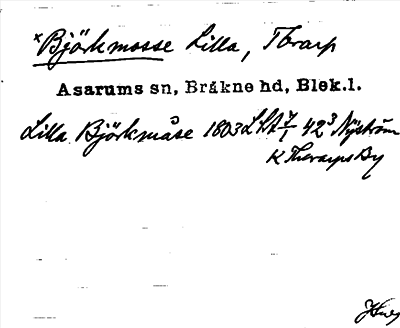 ×Björkmosse Lilla, Torarp
Asarums sn, Bräkne hd, Blek.l.
Lilla Björkmåse 1803 LSA 7/1 42³ Nyström
K Thorarps By